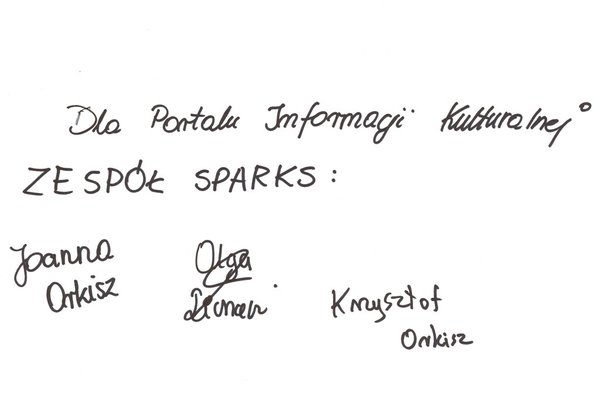 Dla Portalu Informacji Kulturalnej
ZESPÓŁ SPARKS:
Joanna
Orkisz
Olga
Krzysztof
Orkisz